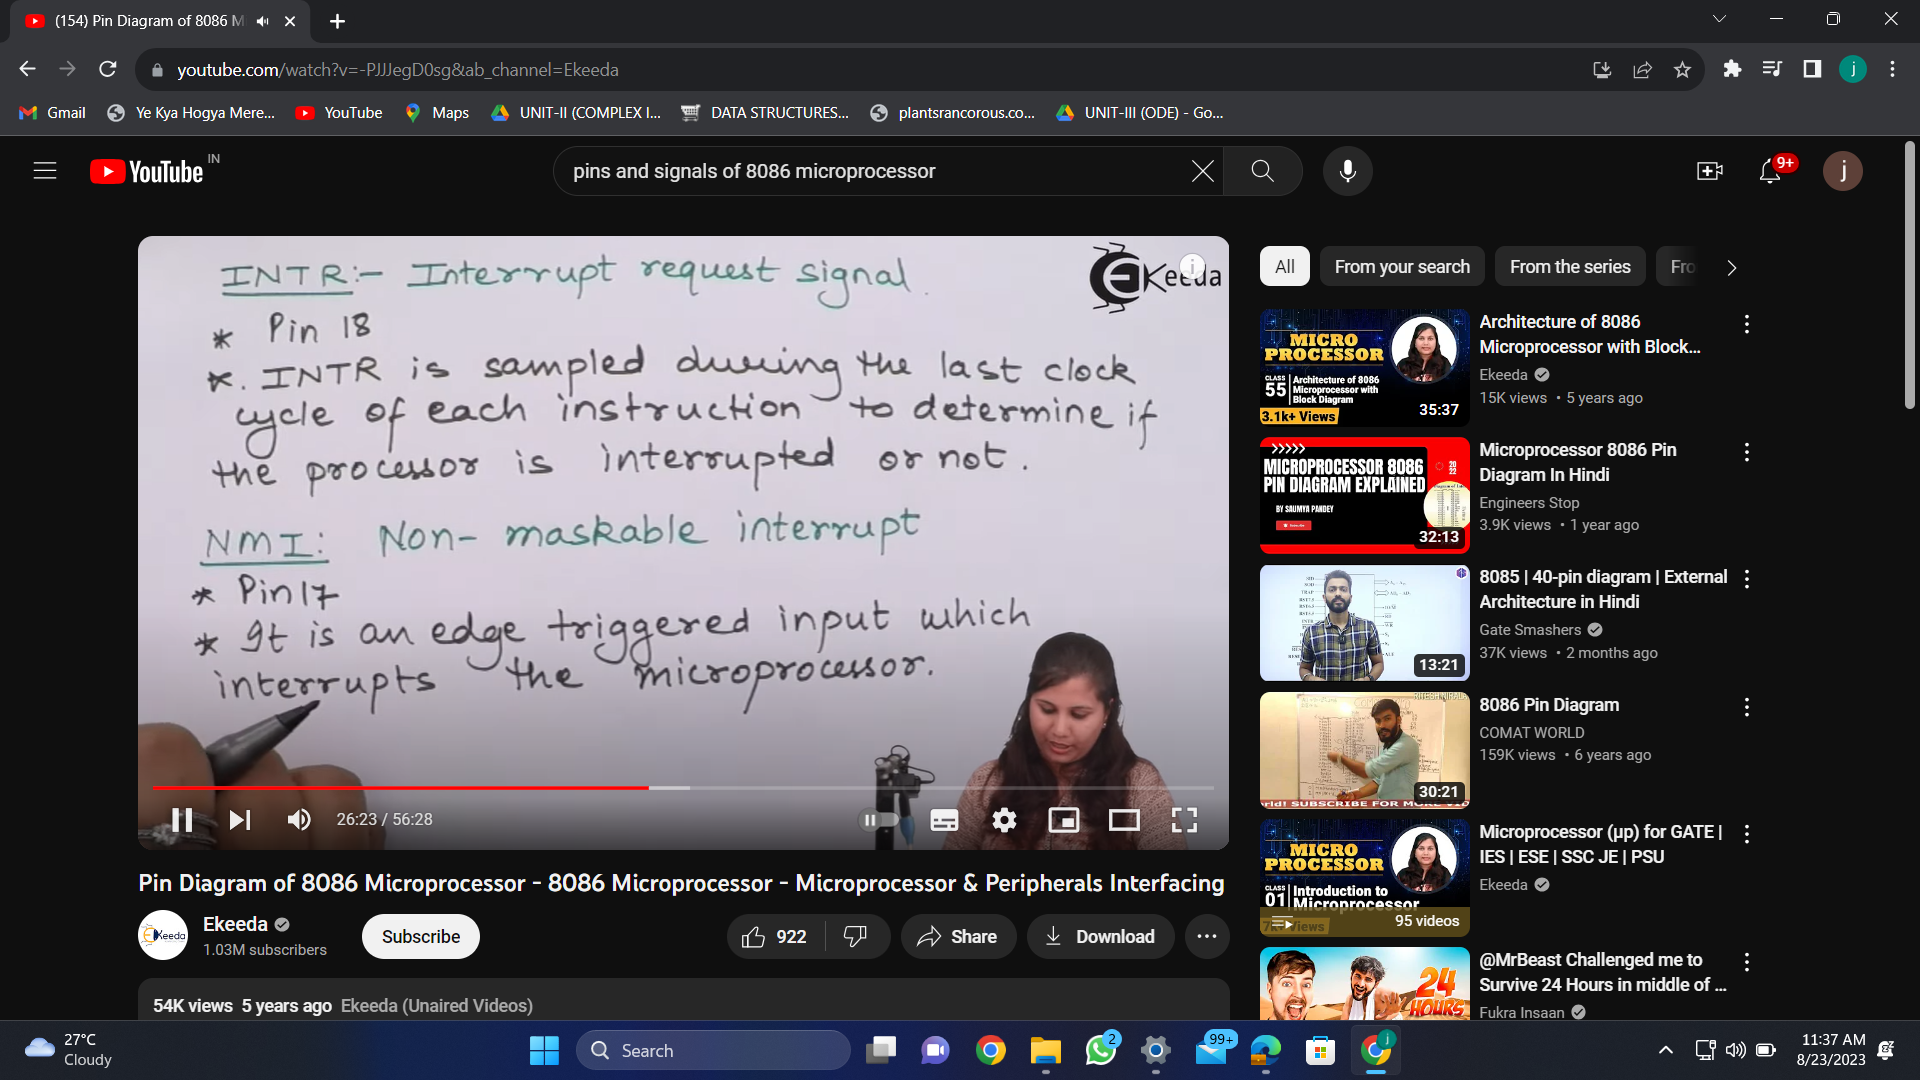 (154) Pin Diagram of 8086 M
youtube.com/watch?v=-PJJJegD0sg&ab_channel=Ekeeda
j
Gmail
Ye Kya Hogya Mere...
YouTube
Maps
UNIT-II (COMPLEX I...
DATA STRUCTURES...
plantsrancorous.co...
UNIT-III (ODE) - Go...
YouTube IN
pins and signals of 8086 microprocessor
9+
j
INTR:- Interrupt request signal.
Ekeeda
* Pin 18
*. INTR is sampled during the last clock
cycle of each instruction to determine if
the processor is interrupted or not.
NMI: Non-maskable interrupt
* Pin 17
* It is an edge triggered input which
interrupts the microprocessor.
26:23 / 56:28
Pin Diagram of 8086 Microprocessor - 8086 Microprocessor - Microprocessor & Peripherals Interfacing
Ekeeda
Ekeeda
1.03M subscribers
Subscribe
922
Share
Download
54K views 5 years ago Ekeeda (Unaired Videos)
All
From your search
From the series
Fro
MICRO
PROCESSOR
CLASS
55
Architecture of 8086
Microprocessor with
Block Diagram
3.1k+ Views
35:37
Architecture of 8086
Microprocessor with Block...
Ekeeda
15K views • 5 years ago
MICROPROCESSOR 8086
PIN DIAGRAM EXPLAINED
BY SAUMYA PANDEY
32:13
Microprocessor 8086 Pin
Diagram In Hindi
Engineers Stop
3.9K views • 1 year ago
13:21
8085 | 40-pin diagram | External
Architecture in Hindi
Gate Smashers
37K views • 2 months ago
30:21
8086 Pin Diagram
COMAT WORLD
159K views • 6 years ago
MICRO
PROCESSOR
CLASS
01
Introduction to
Microprocessor
95 videos
Microprocessor (μp) for GATE |
IES | ESE | SSC JE | PSU
Ekeeda
24
HOURS
@MrBeast Challenged me to
Survive 24 Hours in middle of ...
Fukra Insaan
27°C
Cloudy
Search
2
99+
j
11:37 AM
8/23/2023